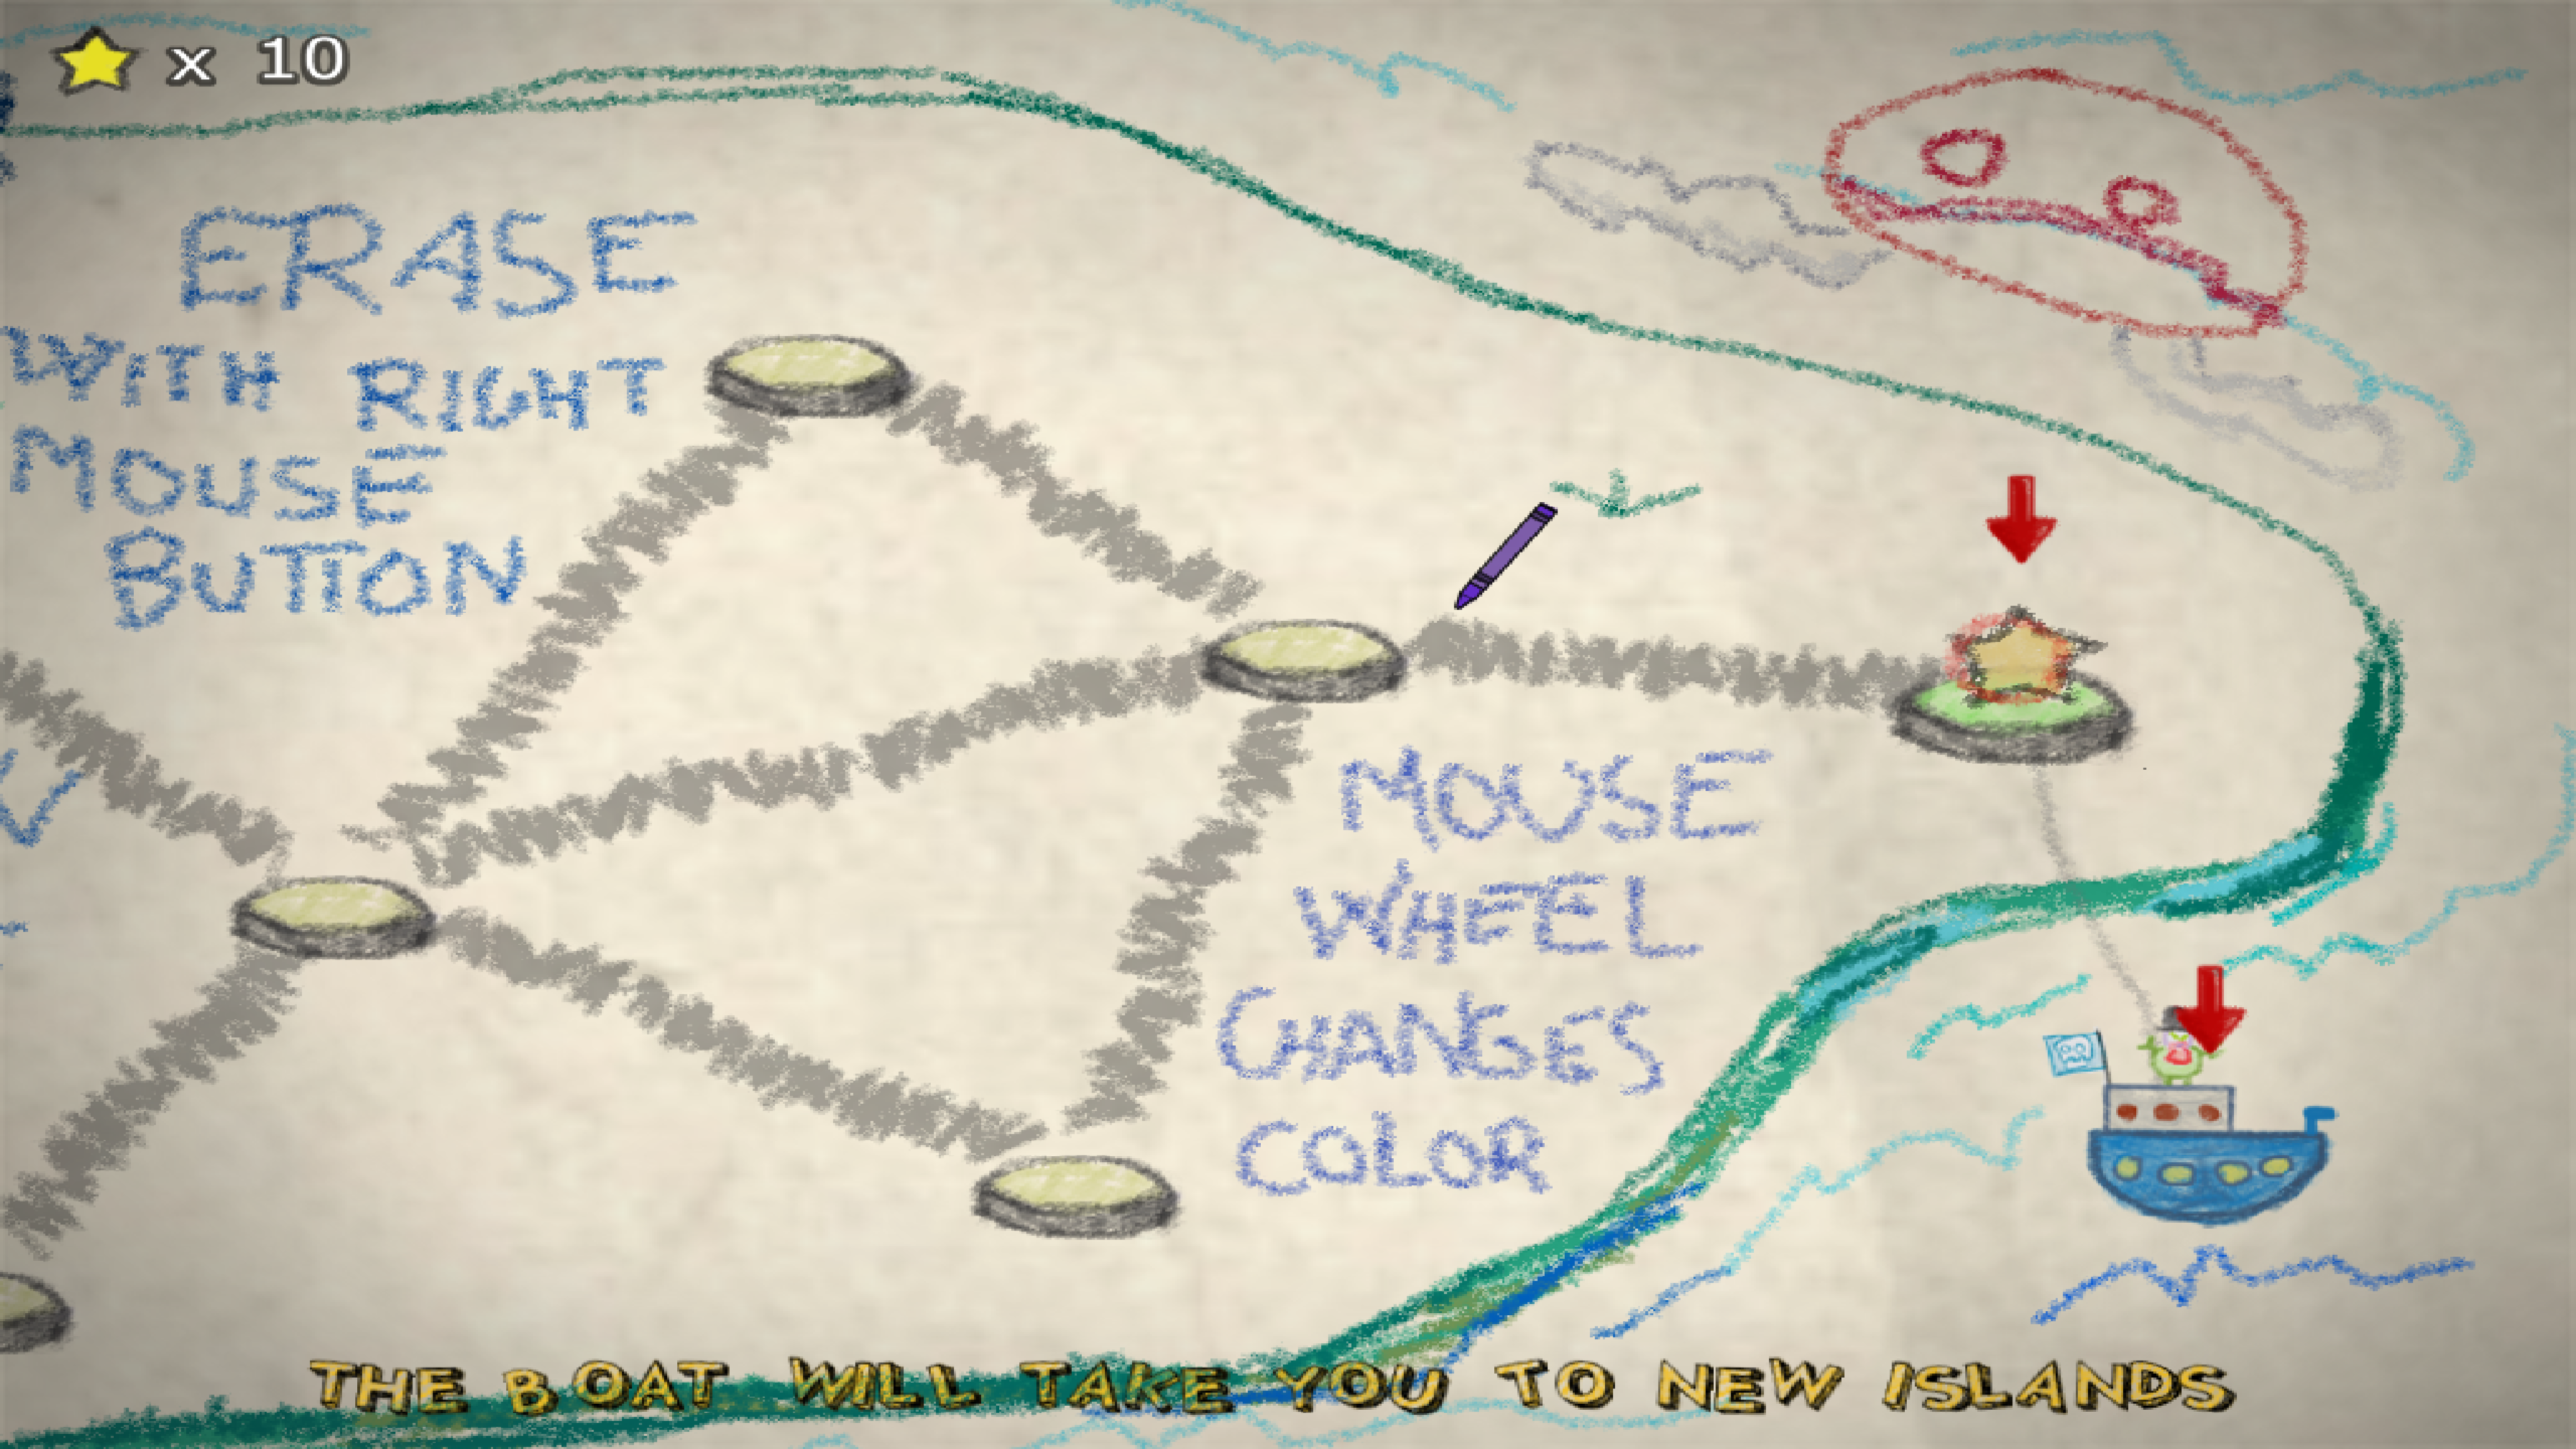 x 10
ERASE
WITH RIGHT
MOUSE
BUTTON
MOUSE
WHEEL
CHANGES
COLOR
THE BOAT WILL TAKE YOU TO NEW ISLANDS